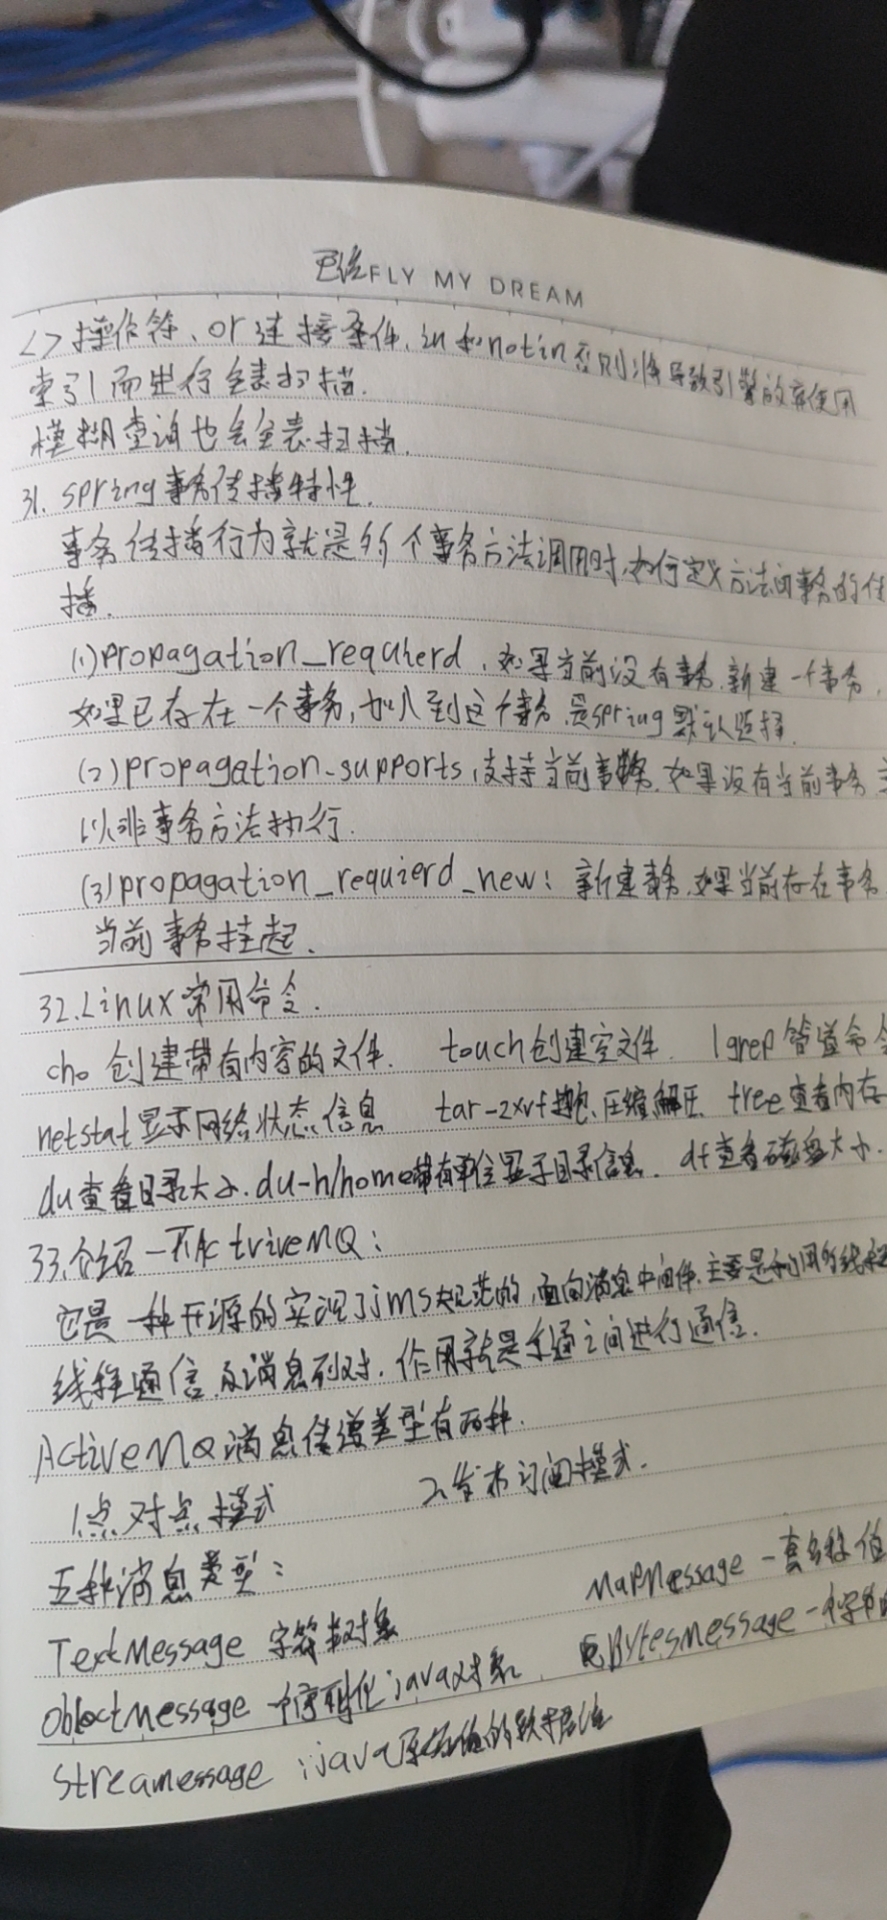 FLY MY DREAM
<>操作符、or连接条件、in和notin否则将导致引擎放弃使用
索引而进行全表扫描.
模糊查询也会全表扫描.
31. spring事务传播特性.
事务传播行为就是多个事务方法调用时,如何定义方法间事务的传
播.
(1)propagation_requierd、如果当前没有事务,新建一个事务,
如果已存在一个事务,加入到这个事务,是spring默认选择.
(2)propagation_supports,支持当前事务.如果没有当前事务
以非事务方法执行.
(3)propagation_requierd_new:新建事务,如果当前存在事务
当前事务挂起.
32.Linux常用命令.
cho 创建带有内容的文件. touch创建空文件. |grep管道命令
netstat显示网络状态信息 tar-zxvf 压缩解压 tree查看内存
du查看目录大小.du-h/home带有单位显示目录信息. df查看磁盘大小.
33.介绍一下ActriveMQ:
它是一种开源的实现了jms规范的,面向消息中间件.主要是利用
线程通信及消息列对,作用就是系通之间进行通信.
ActiveMQ消息传递类型有两种.
1.点对点模式 2.发布订阅模式.
五种消息类型:
MapMessage 一套名称值
TextMessage 字符串对象
BytesMessage 一个字节
ObloctMessage 一个序列化java对象.
Streamessage :java原始值的数据流